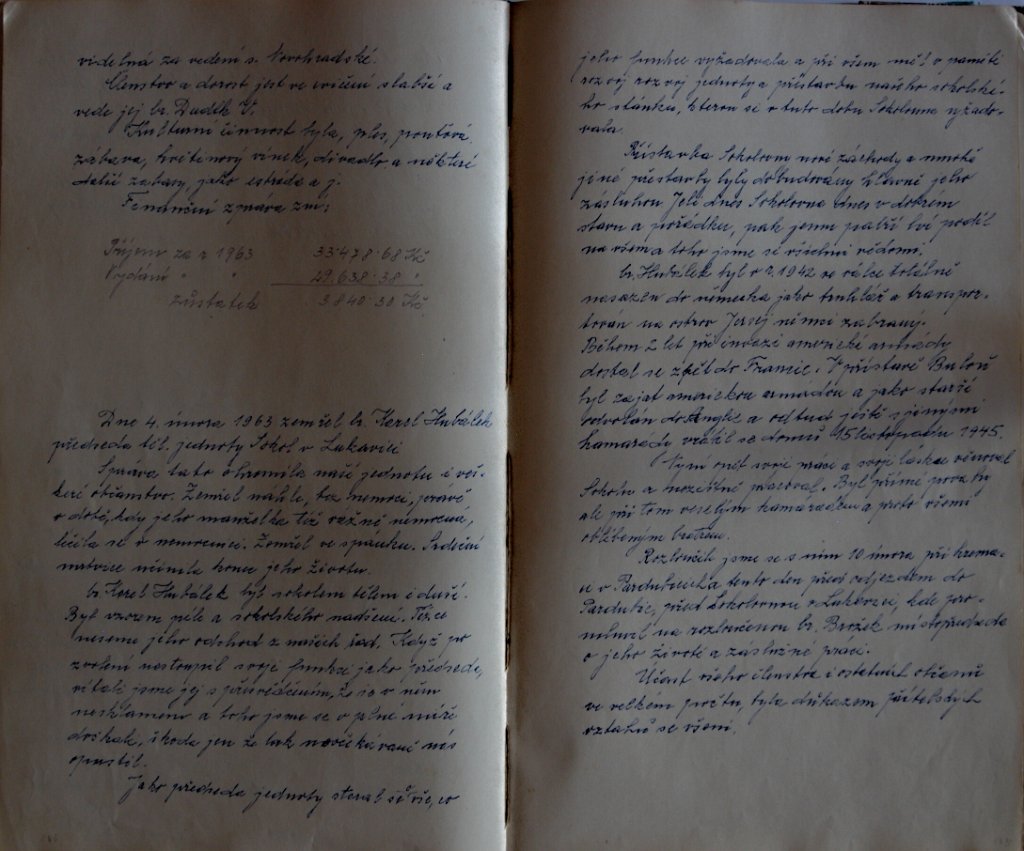 videlná za vedení s. Novohradské.
Členstvo a dorost jest ve cvičení slabší a
vede jej br. Dudík V.
Kulturní činnost byla, ples, pouťová
zábava, květinový vínek, divadlo, a některé
další zabavy, jako estráda a j.
Finanční zprava zní:
Příjem za r 1963 33478·68 Kč
Vydání " " 29.638·38 "
zůstatek 3840·30 Kč
Dne 4. února 1963 zemřel br. Karel Hubálek
předseda těl. jednoty Sokol v Lukavici
Zprava tato ohromila naší jednotu i veš-
keré občanstvo. Zemřel náhle, bez nemoci, právě
v době, kdy jeho manželka též vážně nemocná,
léčila se v nemocnici. Zemřel ve spánku. Srdeční
mrtvice učinila konec jeho životu.
br. Karel Hubálek byl sokolem tělem i duší.
Byl vzorem píle a sokolského nadšení. Těžce
neseme jeho odchod z našich řad. Když po
zvolení nastoupil svojí funkci jako předseda,
vítali jsme jej s přesvědčením, že se v něm
nesklameme a toho jsme se v plné míře
dočkali, škoda jen že tak neočekávaně nás
opustil.
Jako předseda jednoty staral se vše, co
jeho funkce vyžadovala a při všem měl v paměti
rozvoj rozvoj jednoty a přístavbu našeho sokolské-
ho stánku, kterou si v tuto dobu Sokolovna vyžado-
vala.
Přístavba Sokolovny nové záchody a mnohé
jiné přestavby byly dobudovány hlavně jeho
zásluhou. Jeli dnes Sokolovna dnes v dobrém
stavu a pořádku, pak jemu patří lví podíl
na všem a toho jsme si všichni vědomi.
br. Hubálek byl v r. 1942 ve válce totálně
nasazen do německa jako truhlář a transpor-
tován na ostrov Jersej němci zabraný.
Během 2 let při invazi americké armády
dostal se zpět do Francie. V přístavě Buloň
byl zajat americkou armádou a jako starší
odvolán do Anglie a odtud ještě s jinými
kamarady vrátil se domů 15 listopadu 1945.
Nyní opět svojí práci a svojí lásku věnoval
Sokolu a nezištně pracoval. Byl přímé povahy
ale při tom veselým kamarádem a proto všemi
oblíbeným bratrem.
Rozloučili jsme se s ním 10 února při krema-
ci v Pardubicích a tento den před odjezdem do
Pardubic, před Sokolovnou v Lukavici, kde pro-
mluvil na rozloučenou br. Brožek místopředseda
o jeho životě a záslužné práci.
Účast všeho členstva i ostatních občanů
ve velkém počtu, byla důkazem přátelských
vztahů se všemi.